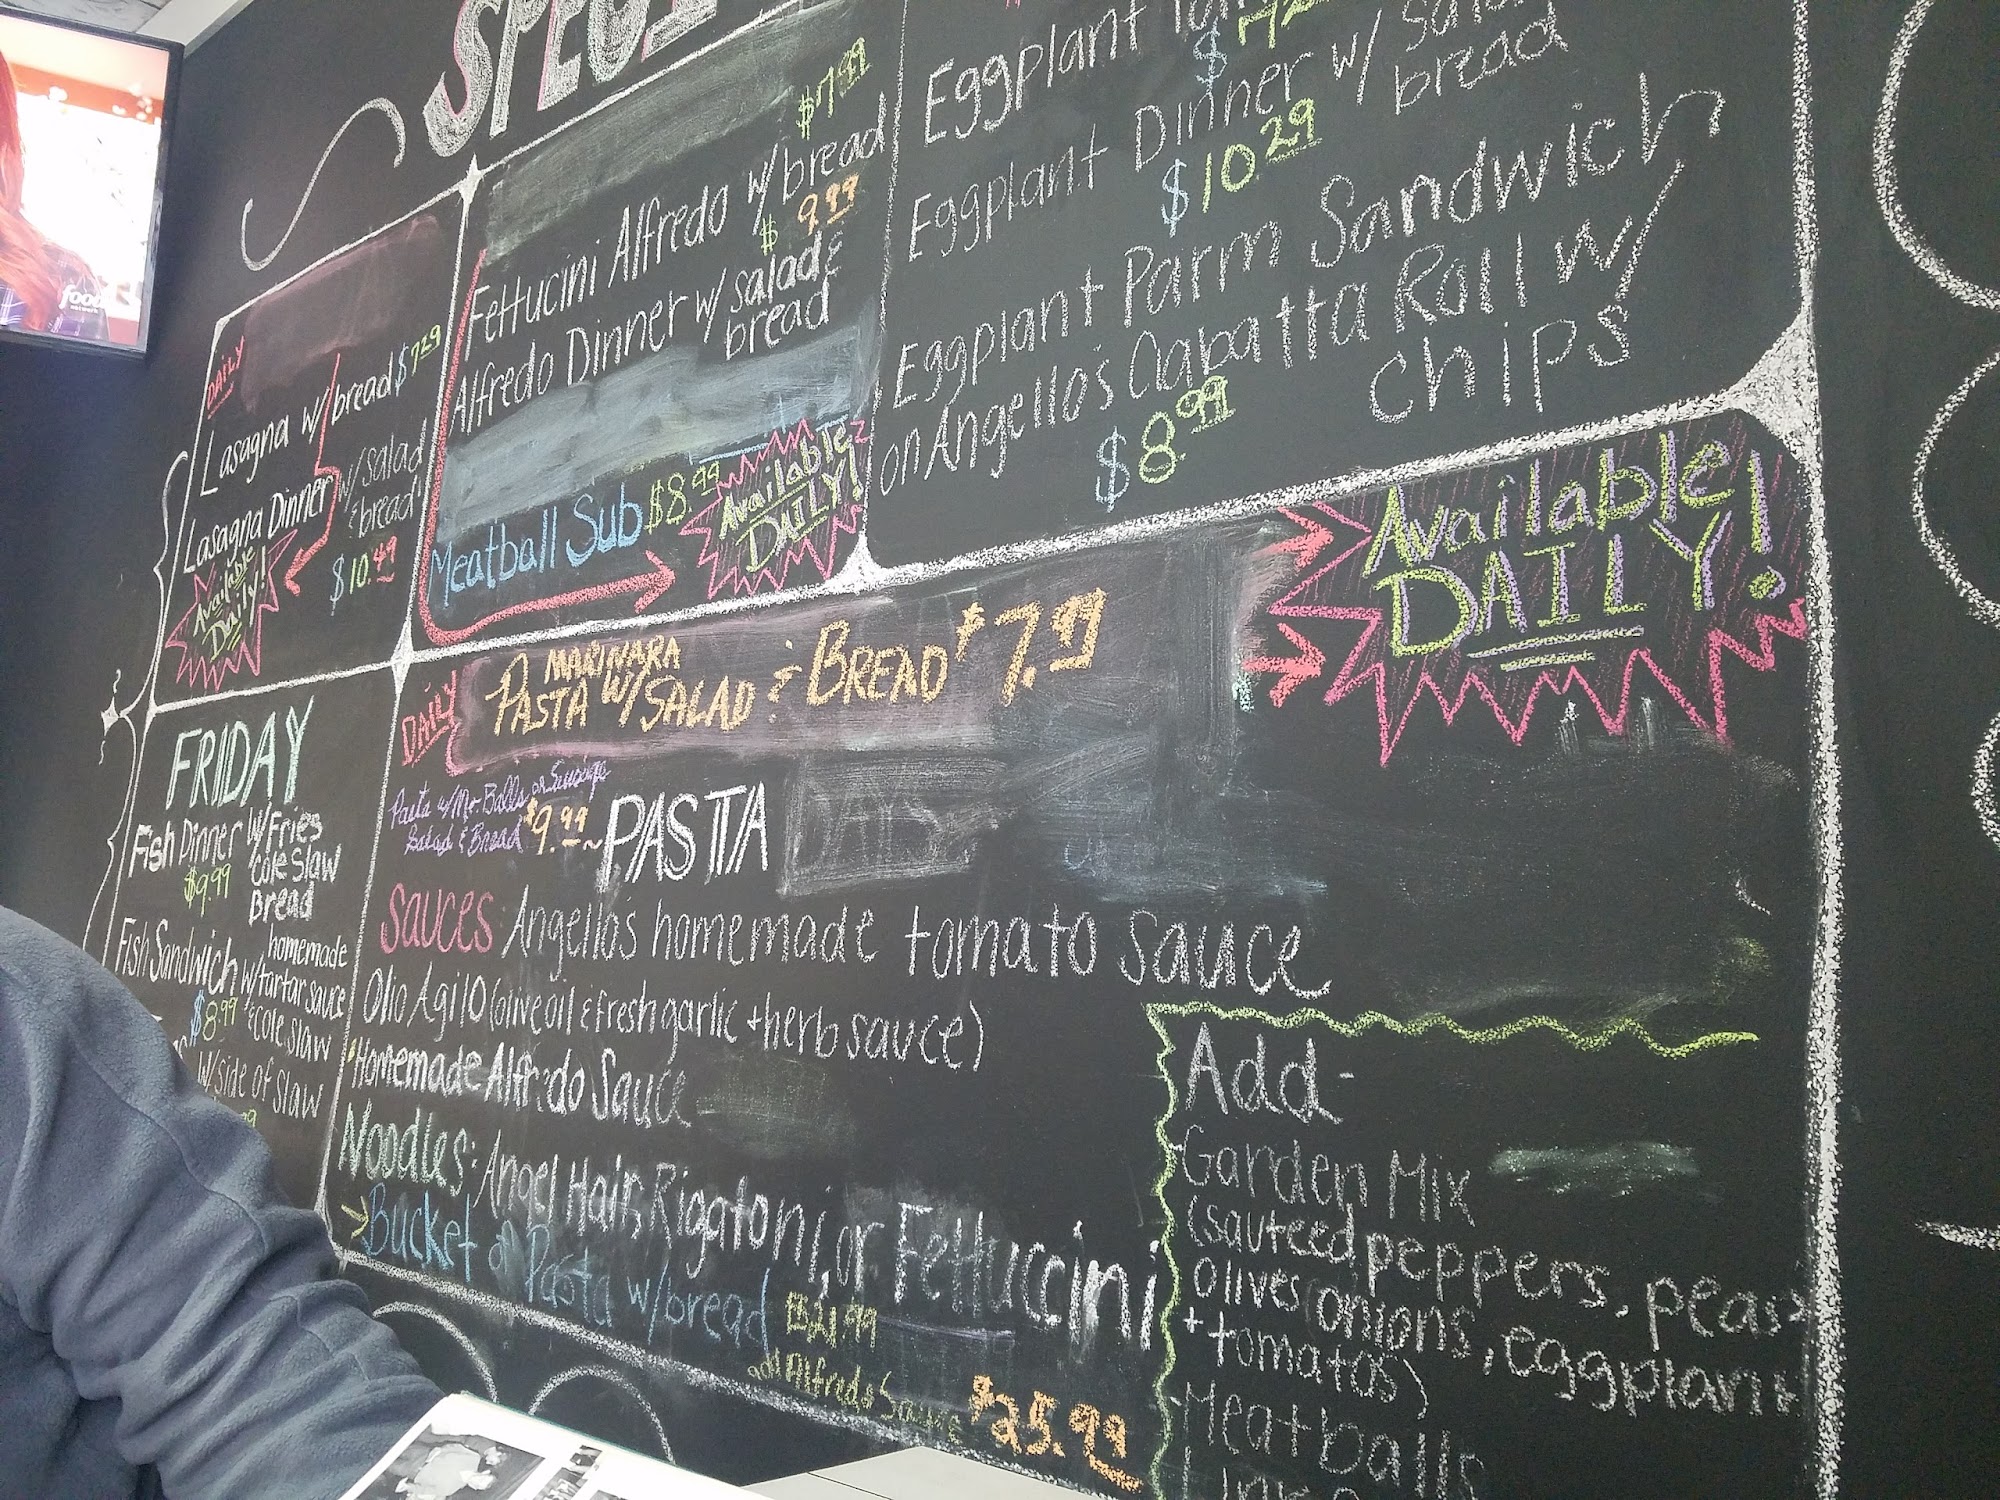 food
network
DAILY
Lasagna w/bread $7.29
Lasagna Dinner w/salad
& bread
$10.49
Available
Daily!
$7.99
Fettucini Alfredo w/bread
$9.99
Alfredo Dinner w/salad &
bread
Meatball Sub $8.49
Available
DAILY!
Eggplant
$
Eggplant Dinner w/
bread
$10.29
Eggplant Parm Sandwich
on Angello's Ciabatta Roll w/
chips
$8.99
Available
DAILY!
FRIDAY
Fish Dinner w/Fries
$9.99 Cole Slaw
Bread
homemade
Fish Sandwich w/tartar sauce
$8.99 & cole slaw
w/side of slaw
DAILY
MARINARA
PASTA w/SALAD & BREAD $7.99
Pasta w/Mt. Balls or Sausage
Salad & Bread $9.99 ~PASTA
SAUCES: Angello's homemade tomato sauce
Olio Agilo (olive oil & fresh garlic + herb sauce)
Homemade Alfredo Sauce
Noodles: Angel Hair, Riggtoni, or Fettuccini
Bucket of Pasta w/bread $21.99
add Alfredo Sauce $25.99
Add-
Garden Mix
(sauteed peppers, peas,
olives, onions, eggplant
+ tomatos)
Meatballs